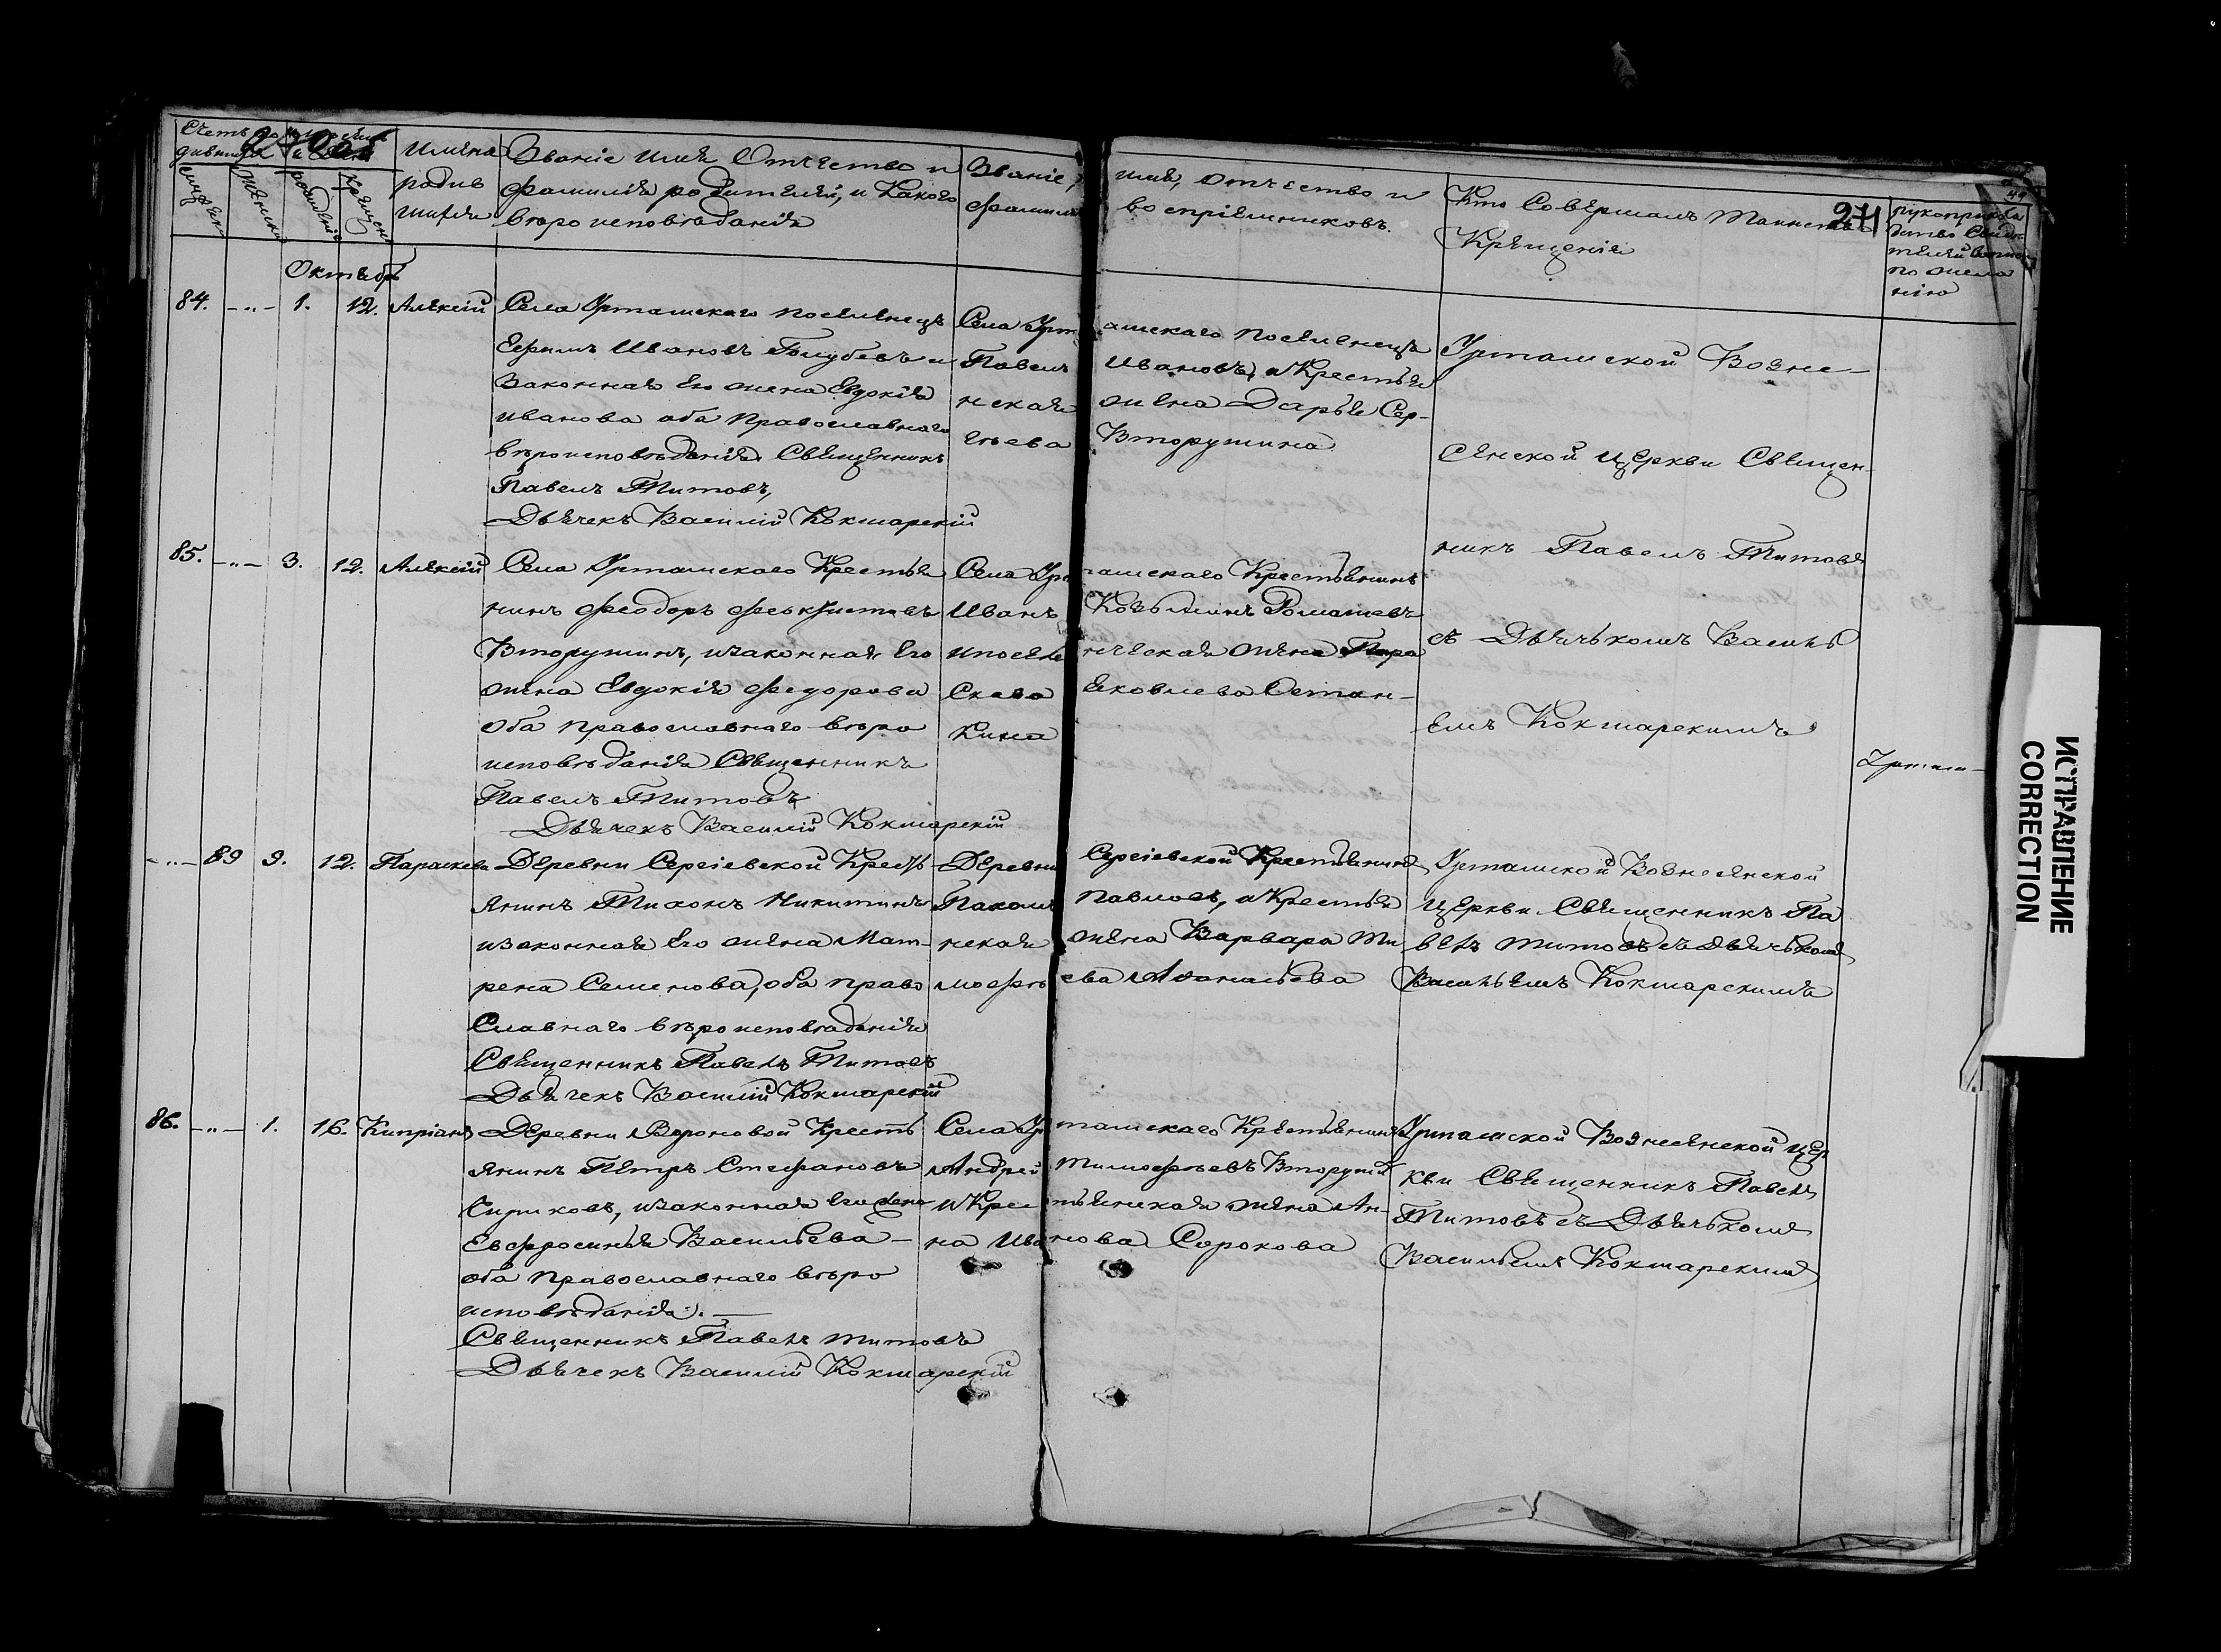 Счетъ ро
дившихся
мѣсяцъ
и день
мужеска
женска
рожденія
крещен
Имена
родив
шихся
Званіе имя Отчество и
фамилія родителей, и Какого
вѣроисповѣданія
Званіе,
фамилія
имя, отчество и
воспріемниковъ.
Кто Совершалъ Таинство
Крещенія
271
рукоприкла
дство Свидѣ
телей записи
по жела
нію
Октябрь
84. -"- 1. 12. Алексій
Села Урташскаго поселенецъ
Ефимъ Ивановъ Голубевъ и
Законная его жена Евдокія
Иванова оба Православнаго
вѣроисповѣданія. Священникъ
Павелъ Титовъ,
Дьячекъ Василій Кокшарскій
Села Урташскаго поселенецъ
Павелъ Ивановъ, и Крестья
нская жена Дарья Сер-
гѣева Вторушина
Урташской Возне-
сенской церкви Священ-
никъ Павелъ Титовъ
съ Дьячькомъ Василь
емъ Кокшарскимъ
85. -"- 3. 12. Алексій
Села Урташскаго Крестья
нинъ Феодоръ Феоктистовъ
Вторушинъ, изаконная Его
жена Евдокія Федорова
Оба православнаго вѣро
исповѣданія Священникъ
Павелъ Титовъ
Дьячекъ Василій Кокшарскій
Села Урташскаго Крестьянинъ
Иванъ Козьминъ Ромашевъ
ипоселенческая жена Пара
Скева Яковлева Остан-
кина
-"- 89 9. 12. Параскева
Деревни Сергіевской Кресть
янинъ Тихонъ Никитинъ
изаконная Его жена Мат-
рена Семенова, оба право
Славнаго вѣроисповѣданія
Священникъ Павелъ Титовъ
Дьячекъ Василій Кокшарскій
Деревни Сергіевской Крестьянинъ
Пахомъ Павловъ, и Крестья
нская жена Варвара Ти
мофѣева Афанасьева
Урташской Вознесенской
церкви Священникъ Па
велъ Титовъ съ Дьячькомъ
Васильемъ Кокшарскимъ
86. -"- 1. 16. Кипріанъ
Деревни Вороновой Кресть
янинъ Петръ Стефановъ
изаконная Его жена
Евфросинья Васильева -
оба православнаго вѣро
исповѣданія. -
Священникъ Павелъ Титовъ
Дьячекъ Василій Кокшарскій
Села Урташскаго Крестьянинъ
Андрей Тимофѣевъ Вторушин
и Крестьянская жена Ан-
на Иванова Сорокова
Урташской Вознесенской Цер
кви Священникъ Павелъ
Титовъ съ Дьячькомъ
Васильемъ Кокшарскимъ
ИСПРАВЛЕНИЕ
CORRECTION